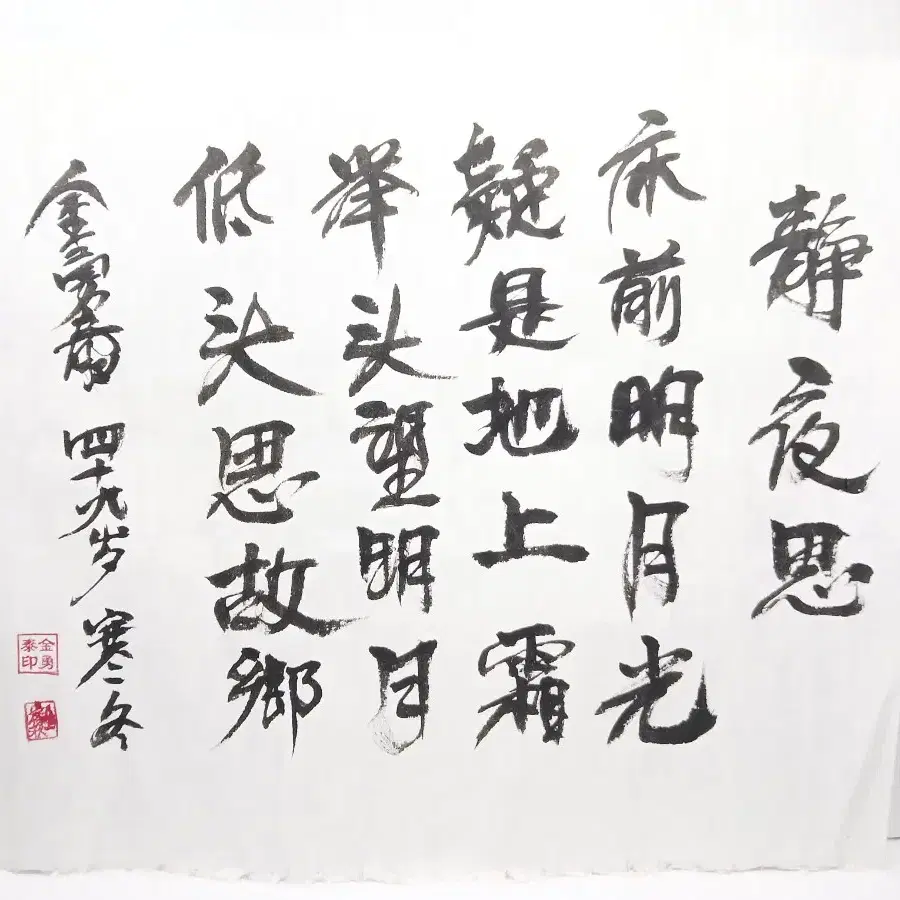 静夜思
床前明月光
疑是地上霜
举头望明月
低头思故鄉
金勇 四十九岁 寒冬
金勇
泰印